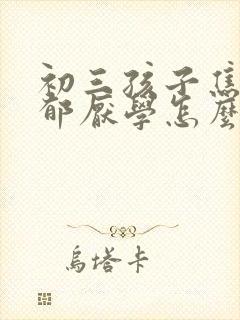 初三孩子焦
郁厭學怎麼
烏塔卡